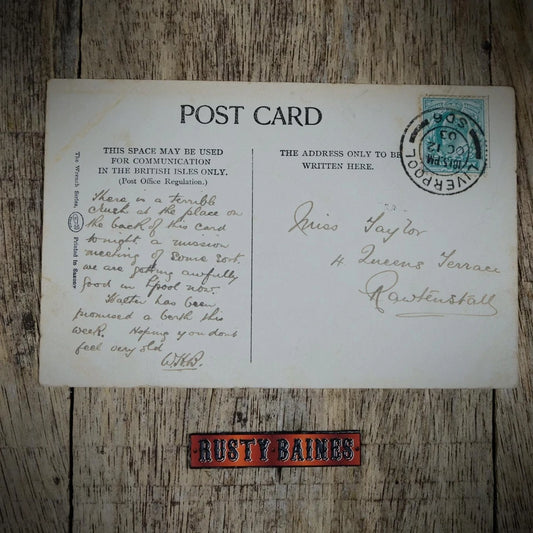 POST CARD
THIS SPACE MAY BE USED
FOR COMMUNICATION
IN THE BRITISH ISLES ONLY.
(Post Office Regulation.)
THE ADDRESS ONLY TO BE
WRITTEN HERE.
The Wrench Series,
Printed in Saxony
There is a terrible
crush at the place on
the back of this card
tonight, a mission
meeting of some sort.
we are getting awfully
good in L'pool now.
has been
promised a berth this
week. Hoping you dont
feel very old
Miss Taylor
4 Queens Terrace
Rawtenstall
LIVERPOOL
OC 12
03
RUSTY BAINES